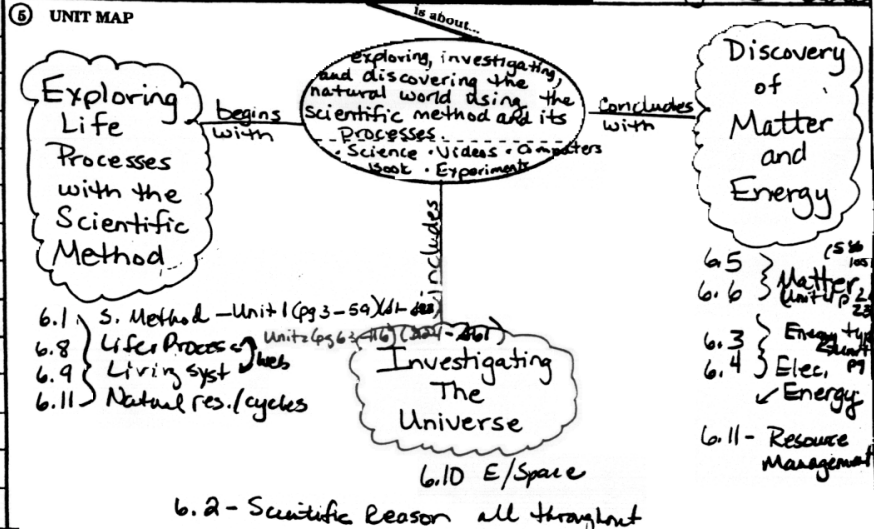 ⑤ UNIT MAP
is about...
exploring, investigating,
and discovering the
natural world using the
Scientific method and its
processes.
· Science · Videos · Computers
Book · Experiments
begins
with
Exploring
Life
Processes
with the
Scientific
Method
Concludes
with
Discovery
of
Matter
and
Energy
includes
Investigating
The
Universe
6.10 E/Space
6.1 S. Method - Unit 1 (pg 3-59)
Unit 2 (pg 63-116)
6.8 Life Process
6.9 Living syst
web
6.11 Natural res./cycles
6.5
6.6 Matter
6.3 Energy
6.4 Elec.
Energy
6.11 - Resource
Management
6.2 - Scientific Reason all throughout